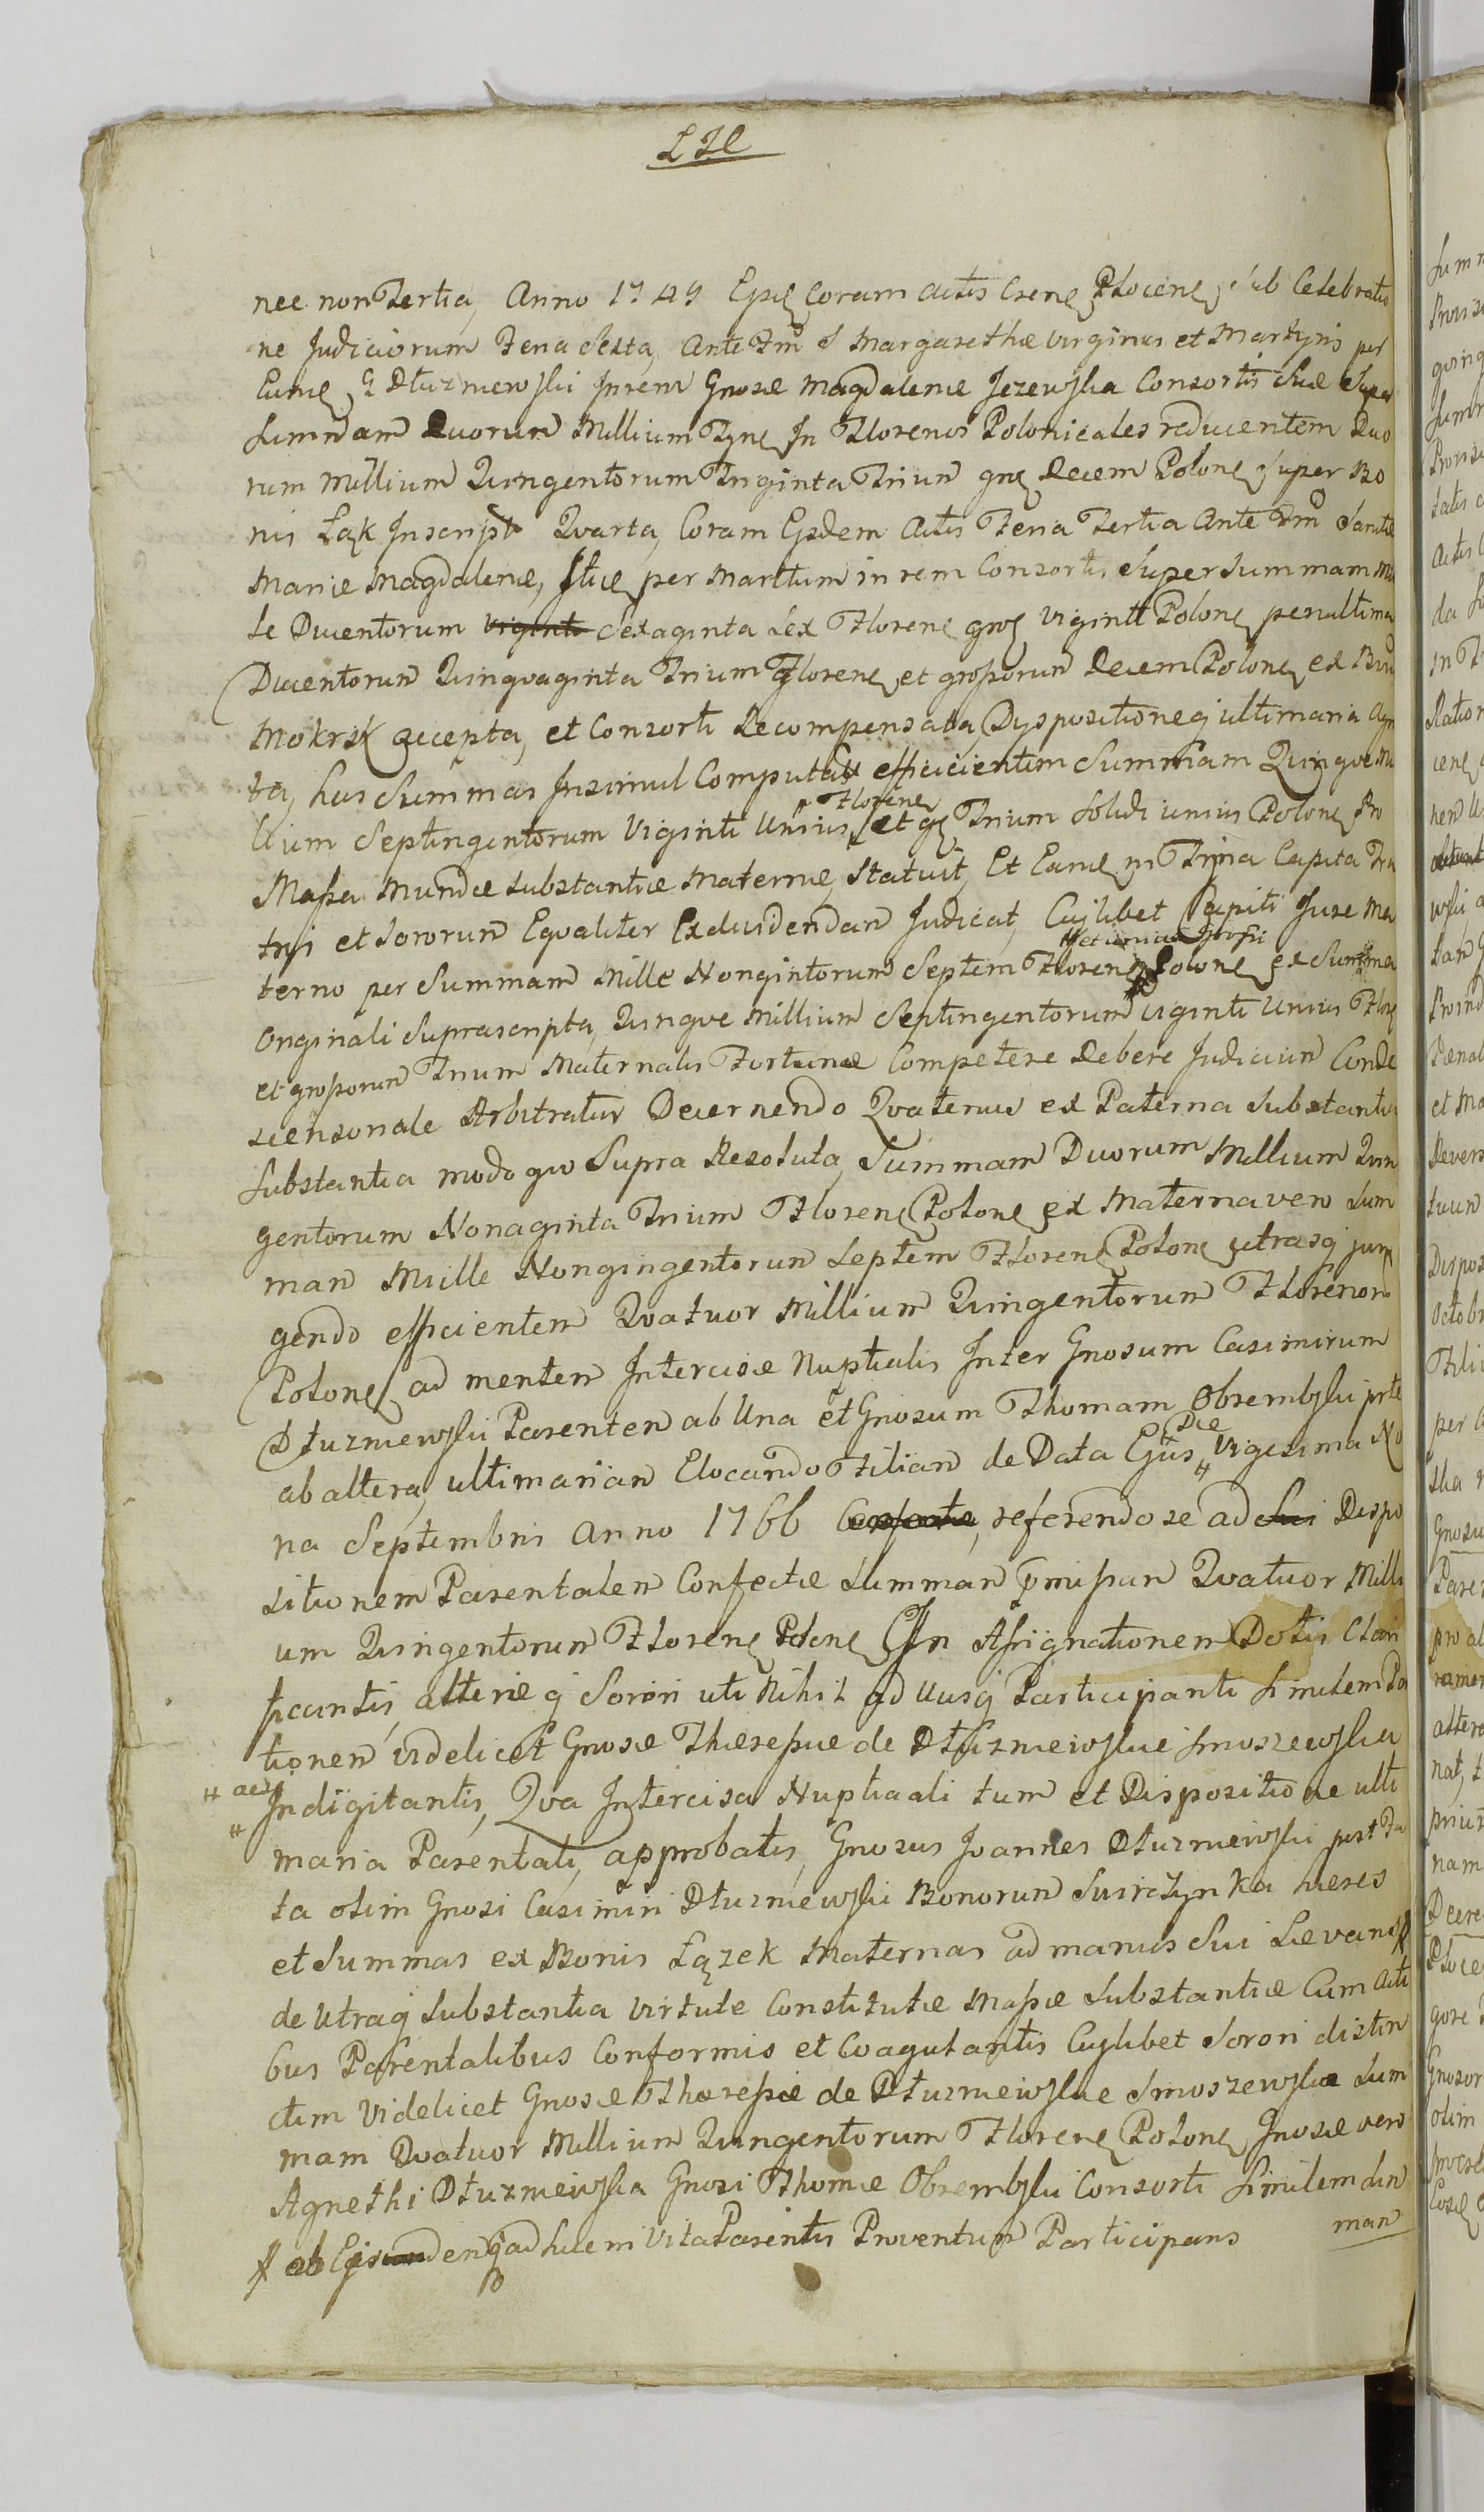 nec non Tertia, Anno 1749 Ejusd Coram Actis Csene Plocene sub Celebratio
ne Judiciorum Feria Sexta, Ante Fm S Margarethæ Virginis et Martyris per
Eund G Dłuzniewski In rem Gnosæ Magdalenæ Jezewska Consortis Suæ Super
Summam Duorum Millium Tyne In Florenos Polonicales reducentem Duo
rum Millium Quingentorum Triginta Trium gne Decem Polone super Bo
nis Łąk Inscripta Quarta, Coram Ejsdem Actis Feria Tertia Ante Fm Sanctæ
Mariæ Magdalenæ, per Maritum in rem Consortis Super Summam Mil
le Ducentorum Sexaginta Sex Florene gros Viginti Polone penultima
Ducentorum Quinquaginta Trium Florene et grossorum Decem Polone ex Bonis
Mokrsk accepta, et Consorti Recompensata, Dyspositioneq ultimaria
ta, has Summas Insimul Computatas efficientem Summam Quinque Mi
llium Septingentorum Viginti Unius Florene et g Trium Solidi unius Polone Pro
Massa Mundæ Substantiæ Maternæ, Statuit, Et Eand in Trina Capita Fra
tris et Sororum Equaliter Exdividendam Judicat, Cujlibet Capiti Jure Ma
terno per Summam Mille Nongintorum Septem Florene et unius Grossi Polone ex Summa
Originali Suprascripta, Quinque Millium Septingentorum viginti Unius Flore
et grossorum Trium Maternalis Fortunæ Competere Debere Judicium Conde
scensonale Arbitratur Decernendo Quatenus ex Paterna Substantia
Substantia modo quo Supra Resoluta, Summam Duorum Millium Quin
gentorum Nonaginta Trium Florene Polone ex Materna vero Sum
mam Mille Nongingentorum Septem Florene Polone utrasq jun
gendo efficientem Quatuor Millium Quingentorum Florenor
Polone ad mentem Intercisæ Nuptialis Inter Gnosum Casimirum
Dłuzniewski Parentem ab Una et Gnosum Thomam Obrembski prte
ab altera, ultimarian Elocando Filiam de Data Ejus Die Vigesima No
na Septembris Anno 1766, referendo se ad Dispo
sitionem Parentalem Confectæ Summam pmissam Quatuor Milli
um Quingentorum Florene Polone In Assignationem Dotis Clari
ficantis, alteriæ q Sorori uti Nihil ad Uusq Participanti Similem Po
tionem videlicet Gnosæ Theressiæ de Dłuzniewskie Smoszewska
Indigitantis, Qva Intercisa Nuptiaali tum et Dispositione ulti
maria Parentali, approbatis, Gnosus Joannes Dłuzniewski post Fa
ta olim Gnosi Casimiri Dłuzniewski Bonorum Swirczynka hæres
et Summas ex Bonis Łązek Maternas ad manus Sui Levans
de Utraq Substantia virtute Constitutæ Massæ Substantiæ Cum Acti
bus Parentalibus Conformis et Coagulantis Cujlibet Sorori distin
ctim Videlicet Gnosæ Theressiæ de Dłuzniewskie Smoszewska Sum
mam Quatuor Millium Quingentorum Florene Polone, Gnosæ vero
Agnethi Dłuzniewska Gnosi Thomæ Obrembski Consorti Similem Sum
ab Ejsdemq adhuc in Vita Parentis Proventum Participans
mam